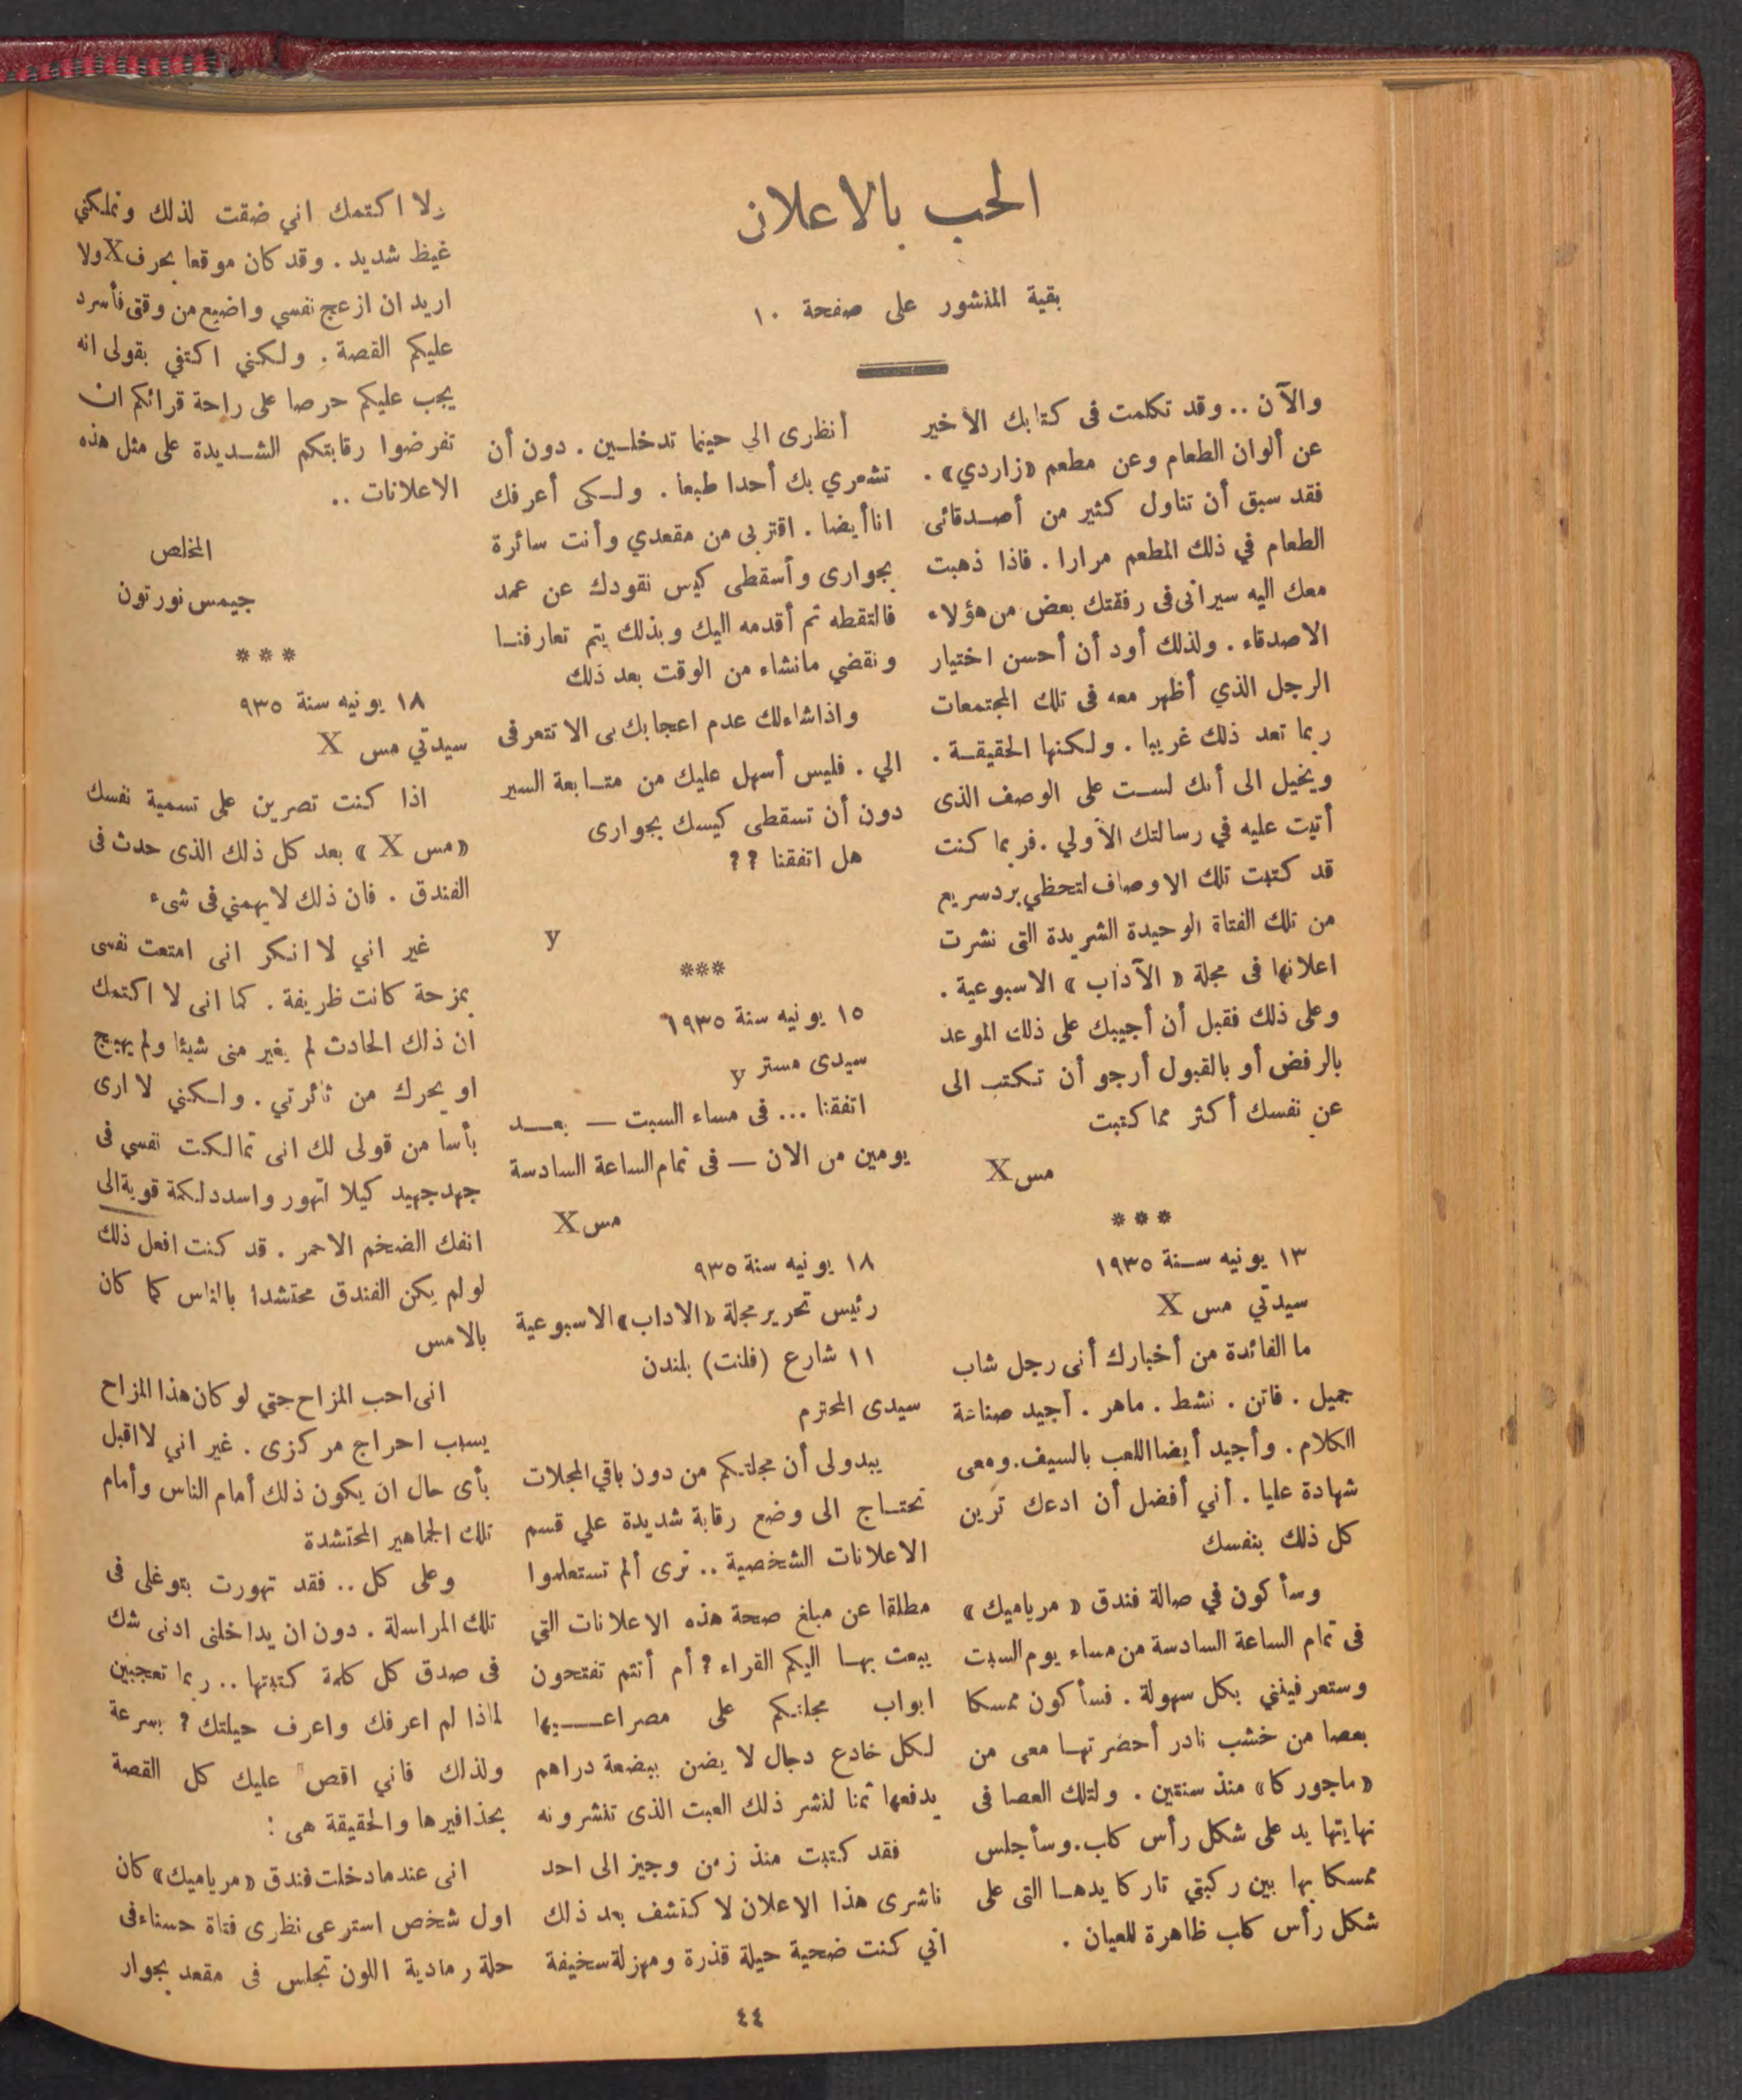 الحب بالاعلان
بقية المنشور على صفحة ١٠
والآن .. وقد تكلمت فى كتابك الأخير
عن ألوان الطعام وعن مطعم «زاردي» .
فقد سبق أن تناول كثير من أصدقائى
الطعام في ذلك المطعم مرارا . فاذا ذهبت
معك اليه سيرانى فى رفقتك بعض من هؤلاء
الاصدقاء . ولذلك أود أن أحسن اختيار
الرجل الذي أظهر معه فى تلك المجتمعات
ربما تعد ذلك غريبا . ولكنها الحقيقة .
ويخيل الى أنك لست على الوصف الذى
أتيت عليه في رسالتك الأولي . فربما كنت
قد كتبت تلك الاوصاف لتحظي برد سريع
من تلك الفتاة الوحيدة الشريدة التى نشرت
اعلانها فى مجلة « الآداب » الاسبوعية .
وعلى ذلك فقبل أن أجيبك على ذلك الموعد
بالرفض أو بالقبول أرجو أن تكتب الى
عن نفسك أكثر مما كتبت
مس X
***
١٣ يونيه سنة ١٩٣٥
سيدتي مس X
ما الفائدة من أخبارك أنى رجل شاب
جميل . فاتن . نشط . ماهر . أجيد صناعة
الكلام . وأجيد أيضا اللعب بالسيف . ومعى
شهادة عليا . أني أفضل أن ادعك ترين
كل ذلك بنفسك
وسأكون في صالة فندق « مرياميك »
فى تمام الساعة السادسة من مساء يوم السبت
وستعرفينني بكل سهولة . فسأكون ممسكا
بعصا من خشب نادر أحضرتها معى من
«ماجوركا» منذ سنتين . ولتلك العصا فى
نهايتها يد على شكل رأس كلب . وسأجلس
ممسكا بها بين ركبتي تاركا يدها التى على
شكل رأس كلب ظاهرة للعيان .
أنظرى الي حينما تدخلين . دون أن
تشعري بك أحدا طبعا . ولكى أعرفك
انا أيضا . اقتربى من مقعدي وأنت سائرة
بجوارى وأسقطى كيس نقودك عن عمد
فالتقطه ثم أقدمه اليك وبذلك يتم تعارفنا
ونقضي مانشاء من الوقت بعد ذلك
واذا شاء لك عدم اعجابك بى الا تتعرفى
الي . فليس أسهل عليك من متابعة السير
دون أن تسقطى كيسك بجوارى
هل اتفقنا ??
y
***
١٥ يونيه سنة ١٩٣٥
سيدى مستر y
اتفقنا ... فى مساء السبت — بعد
يومين من الان — فى تمام الساعة السادسة
مس X
١٨ يونيه سنة ٩٣٥
رئيس تحرير مجلة «الاداب» الاسبوعية
١١ شارع (فلنت) بلندن
سيدى المحترم
يبدولى أن مجلتكم من دون باقي المجلات
تحتاج الى وضع رقابة شديدة علي قسم
الاعلانات الشخصية .. ترى ألم تستعلموا
مطلقا عن مبلغ صحة هذه الاعلانات التي
يبعث بها اليكم القراء ? أم أنتم تفتحون
ابواب مجلتكم على مصراعيها
لكل خادع دجال لا يضن ببضعة دراهم
يدفعها ثمنا لنشر ذلك العبث الذى تنشرونه
فقد كتبت منذ زمن وجيز الى احد
ناشرى هذا الاعلان لا كتشف بعد ذلك
اني كنت ضحية حيلة قذرة ومهزلة سخيفة
ولا اكتمك اني ضقت لذلك وتملكني
غيظ شديد . وقد كان موقعا بحرف X ولا
اريد ان ازعج نفسي واضيع من وقتى فأسرد
عليكم القصة . ولكنني اكتفي بقولى انه
يجب عليكم حرصا على راحة قرائكم ان
تفرضوا رقابتكم الشديدة على مثل هذه
الاعلانات ..
المخلص
جيمس نورتون
***
١٨ يونيه سنة ٩٣٥
سيدتي مس X
اذا كنت تصرين على تسمية نفسك
«مس X » بعد كل ذلك الذى حدث فى
الفندق . فان ذلك لا يهمني فى شىء
غير اني لا انكر انى امتعت نفسى
بمزحة كانت ظريفة . كما انى لا اكتمك
ان ذلك الحادث لم يغير منى شيئا ولم يهيج
او يحرك من ثائرتي . ولكنني لا ارى
بأسا من قولى لك انى تمالكت نفسي فى
جهد جهيد كيلا اتهور واسدد لكمة قوية الى
انفك الضخم الاحمر . قد كنت افعل ذلك
لو لم يكن الفندق محتشدا بالناس كما كان
بالامس
انى احب المزاح حتي لو كان هذا المزاح
يسبب احراج مركزى . غير اني لا اقبل
بأى حال ان يكون ذلك أمام الناس وأمام
تلك الجماهير المحتشدة
وعلى كل .. فقد تهورت بتوغلى فى
تلك المراسلة . دون ان يداخلنى ادنى شك
فى صدق كل كلمة كتبتها .. ربما تعجبين
لماذا لم اعرفك واعرف حيلتك ? بسرعة
ولذلك فاني اقص عليك كل القصة
بحذافيرها والحقيقة هى :
انى عندما دخلت فندق «مرياميك» كان
اول شخص استرعى نظرى فتاة حسناء فى
حلة رمادية اللون تجلس فى مقعد بجوار
٤٤